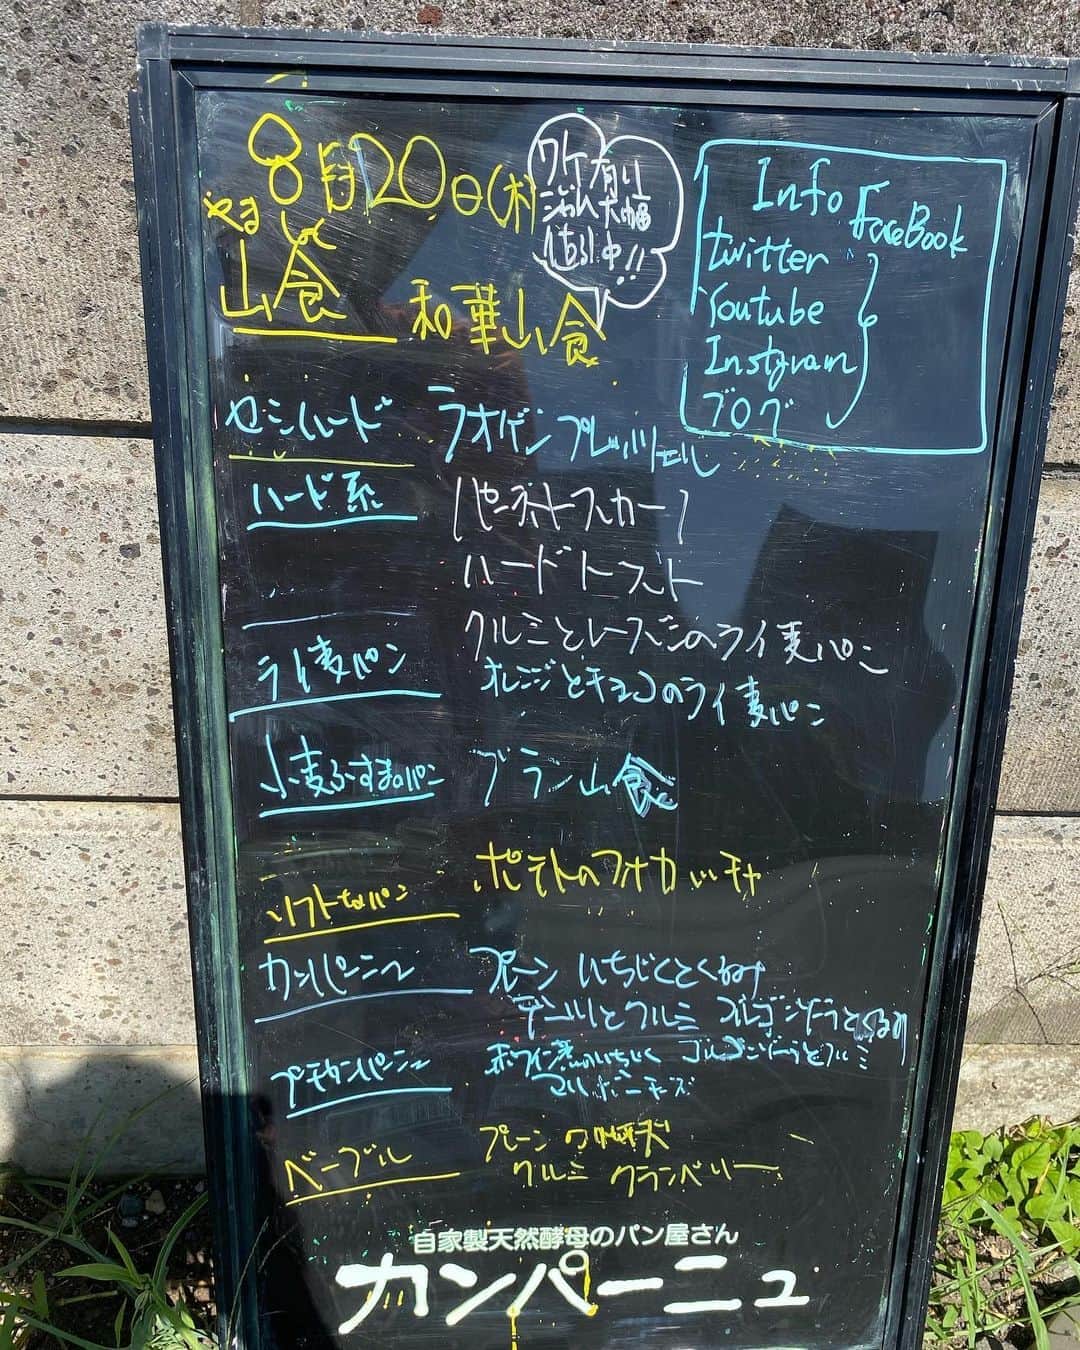 8月20日(木)
ワケ有り
大幅
中!!
Info
FaceBook
twitter
Youtube
Instgram
ブログ
山食
和華山食
セミハード
ラオゲンプレッツェル
ハード系
ハードトースト
ライ麦パン
クルミとレーズンのライ麦パン
オレンジとチョコのライ麦パン
小麦ふすまのパン
ブラン山食
ソフトなパン
ポテトのフォカッチャ
カンパーニュ
プレーン いちじくとくるみ
とクルミ ゴルゴンゾーラとくるみ
プチカンパーニュ
いちじく ゴルゴンゾーラとクルミ
チーズ
ベーグル
プレーン
クルミ クランベリー
自家製天然酵母のパン屋さん
カンパーニュ